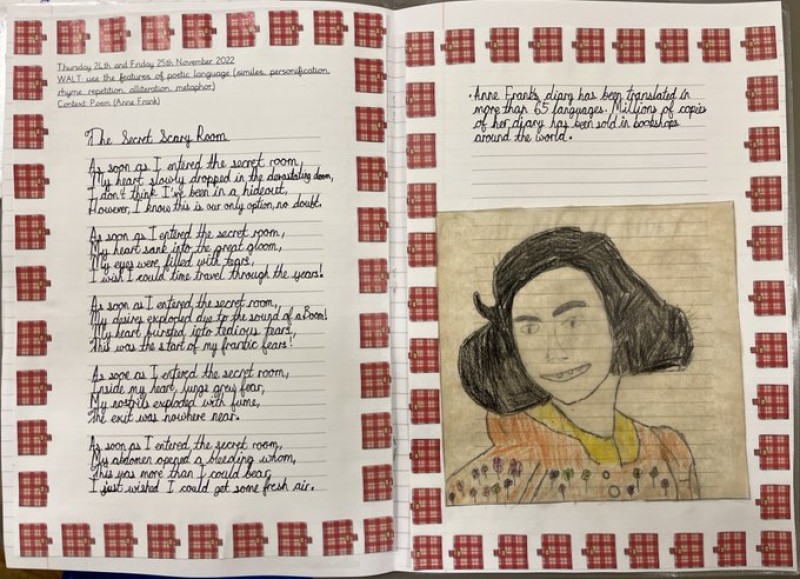 Thursday 24th and Friday 25th November 2022
WALT: use the features of poetic language (similes, personification,
rhyme, repetition, alliteration, metaphor)
Context: Poem (Anne Frank)
The Secret Scary Room
As soon as I entered the secret room,
My heart slowly dropped in the devastating doom,
I don't think I've been in a hideout,
However, I know this is our only option, no doubt.
As soon as I entered the secret room,
My heart sank into the great gloom,
My eyes were filled with tears,
I wish I could time travel through the years!
As soon as I entered the secret room,
My desires exploded due to the sound of a Boom!
My heart bursted into tedious tears,
This was the start of my frantic fears!
As soon as I entered the secret room,
Inside my heart, lungs grew fear,
My nostrils exploded with fume,
The exit was nowhere near.
As soon as I entered the secret room,
My abdomen opened a bleeding whom,
This was more than I could bear,
I just wished I could get some fresh air.
• Anne Frank's diary has been translated in
more than 65 languages. Millions of copies
of her diary has been sold in bookshops
around the world.